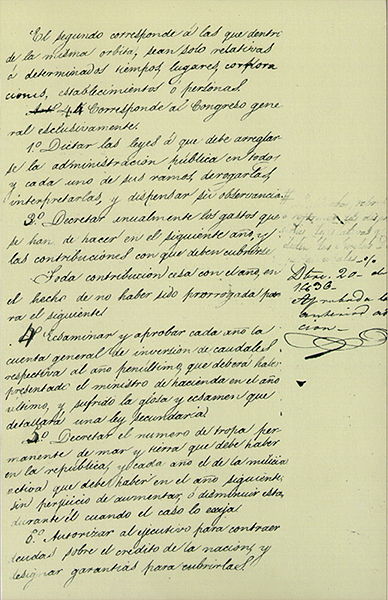 El segundo corresponde á las que dentro
de la misma orbita, sean solo relativas
á determinados tiempos, lugares, corpora
ciones, establecimientos o personas.
Art. 44 Corresponde al Congreso gene
ral esclusivamente.
1.º Dictar las leyes á que debe arreglar
se la administración pública en todos
y cada uno de sus ramos, derogarlas,
interpretarlas, y dispensar su observancia.
3.º Decretar anualmente los gastos que
se han de hacer en el siguiente año, y
las contribuciones con que deben cubrirse.
Toda contribucion cesa con el año, en
el hecho de no haber sido prorrogada pa
ra el siguiente.
4 Ecsaminar y aprobar cada año la
cuenta general de inversión de caudales
respectiva al año penúltimo, que deberá haber
presentado el ministro de hacienda en el año
ultimo, y sufrido la glosa y ecsamen que
detallará una ley secundaria.
5.º Decretar el numero de tropa per
manente de mar y tierra que debe haber
en la república, y cada año el de la milicia
activa que debe haber en el año siguiente,
sin perjuicio de aumentar, ó disminuir esta,
durante él cuando el caso lo ecsija
6.º Autorizar al ejecutivo para contraer
deudas sobre el crédito de la nacion, y
designar garantías para cubrirlas.
Dbre. 20 de
1836.
Aprobada la
anterior adi
cion.